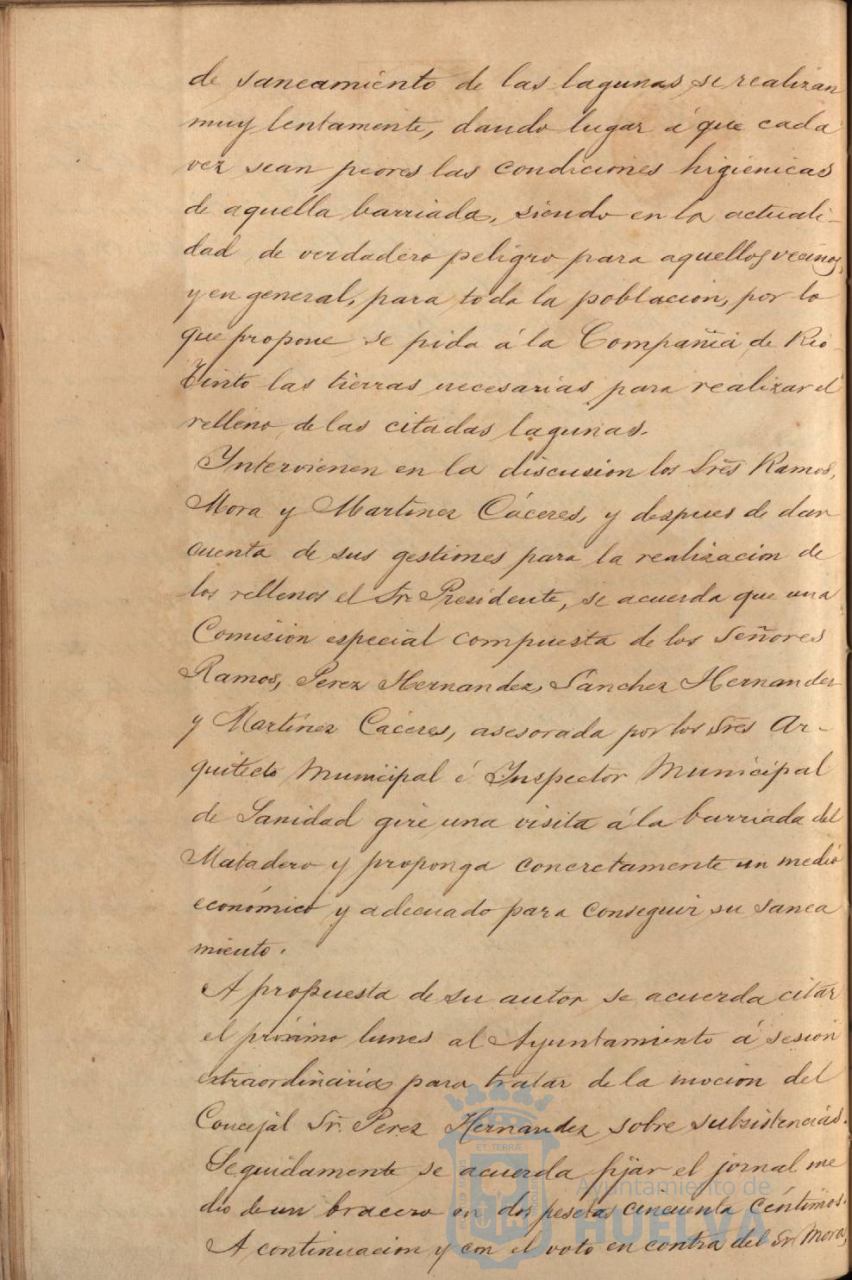 de saneamiento de las lagunas, se realizan
muy lentamente, dando lugar á que cada
vez sean peores las condiciones higiénicas
de aquella barriada, siendo en la actuali-
dad de verdadero peligro para aquellos vecinos,
y en general, para toda la poblacion, por lo
que propone se pida á la Compañía de Rio-
Tinto las tierras necesarias para realizar el
relleno de las citadas lagunas.
Intervienen en la discusion los Sres Ramos,
Mora y Martinez Cáceres, y despues de dar
cuenta de sus gestiones para la realizacion de
los rellenos el Sr. Presidente, se acuerda que una
Comisión especial compuesta de los Señores
Ramos, Perez Hernandez, Sanchez Hernandez
y Martinez Caceres, asesorada por los Sres Ar-
quitecto Municipal é Inspector Municipal
de Sanidad gire una visita á la barriada del
Matadero y proponga concretamente un medio
económico y adecuado para conseguir su sanea
miento.
A propuesta de su autor se acuerda citar
el próximo lunes al Ayuntamiento á sesión
extraordinaria para tratar de la mocion del
Concejal Sr. Perez Hernandez sobre subsistencias.
Seguidamente se acuerda fijar el jornal me
dio de un bracero en dos pesetas cincuenta céntimos.
A continuacion y con el voto en contra del Sr. Mora,
ET TERRÆ
Ayuntamiento de
HUELVA